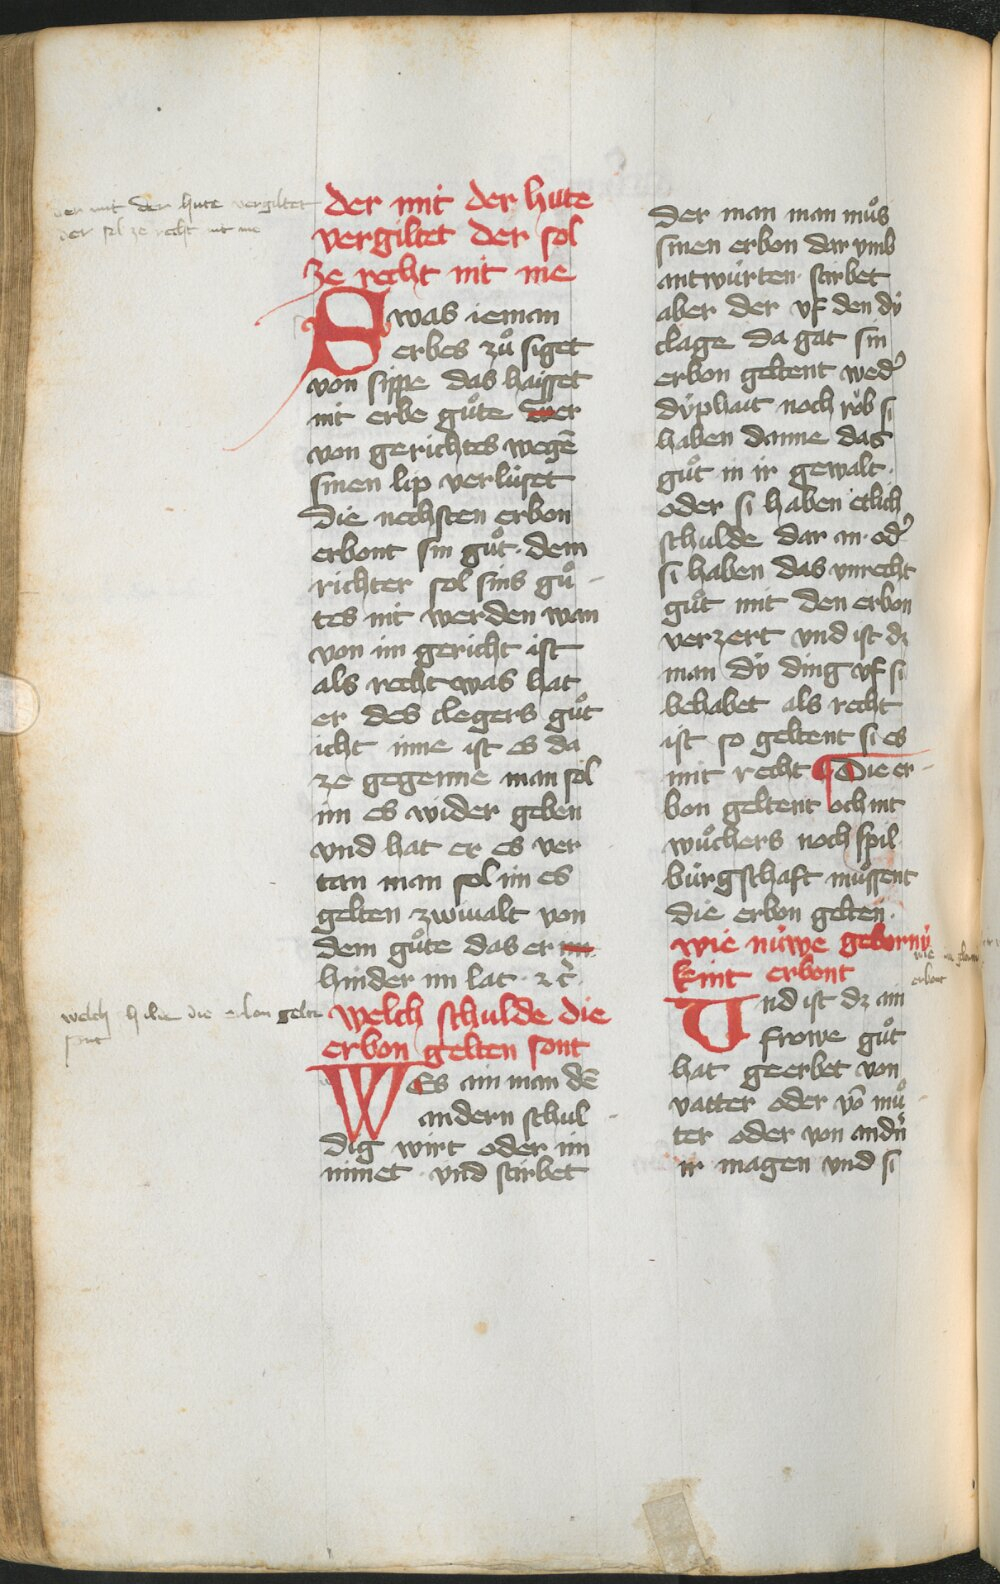 der mit der hute vergiltet
der sol ze recht nit me
der mit der hute
vergiltet der sol
ze recht nit me
Swas ieman
erbes zuͦ siget
von sippe das haisset
nit erbe guͦte wer
von gerichtes wegē
sinen lip verlúset
Die nechsten erbon
erbont sin guͦt · dem
richter sol sins guͦ -
tes nit werden wan
von im gericht ist
als recht was hat
er des clegers guͦt
icht inne ist es da
ze gegenne man sol
im es wider geben
vnd hat er es ver
tan man sol im es
gelten zwiualt von
dem guͦte das er im
hinder im lat · ⁊ c̄ ·
welch die erbon gelten
sont
welch schulde die
erbon gelten sont
Wes ain man dē
andern schul -
dig wirt oder im
nimet · vnd stirbet
der man man muͦs
sinen erbon dar vmb
antwúrten · starbet
aber der vf den dÿ
clage da gat sin
erbon geltent wedʼ
dÿphait noch roͮb si
haben danne das
guͦt in ir gewalt ·
oder si haben etlich
schulde dar an · odʼ
si haben das vnrecht
guͦt mit den erbon
verzert vnd ist dz
man dÿ ding vf si
behabet als recht
ist so geltent si es
mit recht ¶ Die er -
bon geltent och nit
wuͦchers noch spil ·
búrgschaft muͦssent
die erbon gelten ·
wie núwe gebornÿ
kint erbont
erbont
Vnd ist dz ain
frowe guͦt
hat geerbet von
vatter oder vō muͦ -
ter oder von andn̄
ir magen vnd si